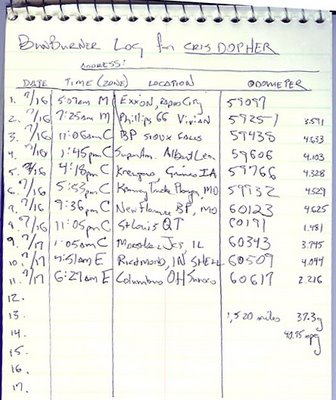 BunBurner Log for CRIS DOPHER
ADDRESS:
DATE TIME (ZONE) LOCATION ODOMETER
1. 9/16 5:07am M Exxon, Rapid City 59097
2. 9/16 7:25am M Phillips 66 Vivian 59251 3.591
3. 9/16 11:06am C BP Sioux Falls 59438 4.633
4. 9/16 1:45pm C Albert Lea 59606 4.103
5. 9/16 4:18pm C IA 59766 4.328
6. 9/16 5:53pm C MO 59932 4.529
7. 9/16 9:36pm C New Florence BP, MO 60123 4.625
8. 9/16 11:05pm C St Louis QT 60191 1.481
9. 9/17 1:05am C IL 60343 3.745
10. 9/17 4:51am E Richmond, IN SHELL 60509 4.044
11. 9/17 6:27am E Columbus OH Sunoco 60617 2.216
12.
13. 1,520 miles 37.3g
14. 40.75 mpg
15.
16.
17.